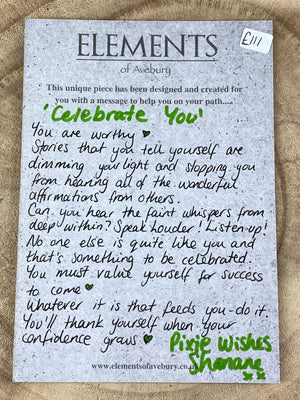 ELEMENTS
£111
of Avebury
This unique piece has been designed and created for
you with a message to help you on your path.....
'Celebrate You'
You are worthy ♥
Stories that you tell yourself are
dimming your light and stopping you
from hearing all of the wonderful
affirmations from others.
Can you hear the faint whispers from
deep within? Speak Louder! Listen-up!
No one else is quite like you and
that's something to be celebrated.
You must value yourself for success
to come ♥
Whatever it is that feeds you-do it.
You'll thank yourself when your
confidence grows ♥
Pixie Wishes
www.elementsofavebury.co